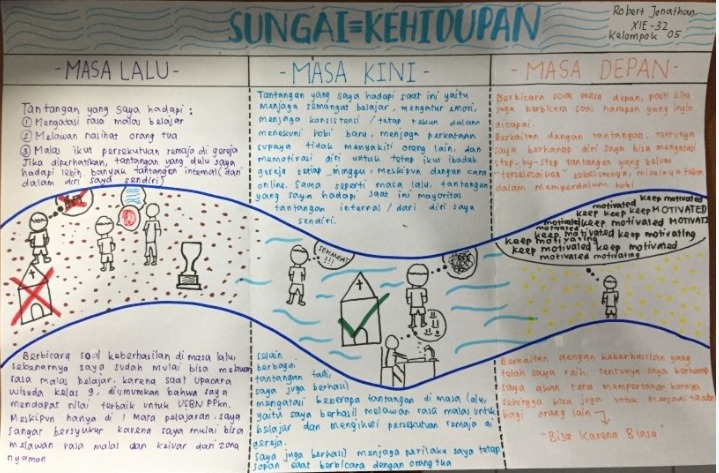 SUNGAI=KEHIDUPAN
Robert Jonathan
XIE-32
Kelompok 05
- MASA LALU -
- MASA KINI -
- MASA DEPAN -
Tantangan yang saya hadapi :
① Mengatasi rasa malas belajar
② Melawan nasihat orang tua
③ Malas ikut persekutuan remaja di gereja
Jika diperhatikan, tantangan yang dulu saya
hadapi lebih banyak tantangan internal (dari
dalam diri saya sendiri)
Tantangan yang saya hadapi saat ini yaitu
menjaga semangat belajar, mengatur emosi,
menjaga konsistensi / tetap tekun dalam
menekuni hobi baru, menjaga perkataan
supaya tidak menyakiti orang lain, dan
memotivasi diri untuk tetap ikut ibadah
gereja setiap minggu, meskipun dengan cara
online. Sama seperti masa lalu, tantangan
yang saya hadapi saat ini mayoritas
tantangan internal / dari diri saya
sendiri.
Berbicara soal masa depan, pasti kita
juga berbicara soal harapan yang ingin
dicapai.
Berkaitan dengan tantangan, tentunya
saya berharap diri saya bisa mengatasi
step-by-step tantangan yang belum
"terselesaikan" sebelumnya, misalnya tekun
dalam memperdalam hobi
motivated keep motivated
keep keep keep MOTIVATED
motivated keep motivated MOTIVATI
keep motivated keep motivating
keep motivating
keep motivated keep motivated
motivated motivating
SEMANGAT
!!!
Berbicara soal keberhasilan di masa lalu
sebenarnya saya sudah mulai bisa melawan
rasa malas belajar, karena saat upacara
wisuda kelas 9, diumumkan bahwa saya
mendapat nilai terbaik untuk USBN PPkn.
Meskipun hanya di 1 mata pelajaran, saya
sangat bersyukur karena saya mulai bisa
melawan rasa malas dan keluar dari zona
nyaman
Selain
berbagai
tantangan tadi,
saya juga berhasil
mengatasi beberapa tantangan di masa lalu,
yaitu saya berhasil melawan rasa malas untuk
belajar dan mengikuti persekutuan remaja di
gereja.
Saya juga berhasil menjaga perilaku saya tetap
sopan saat berbicara dengan orang tua
Berkaitan dengan keberhasilan yang
telah saya raih, tentunya saya berharap
saya akan terus mempertahankannya
sehingga bisa juga untuk menjadi teladan
bagi orang lain
- Bisa Karena Biasa